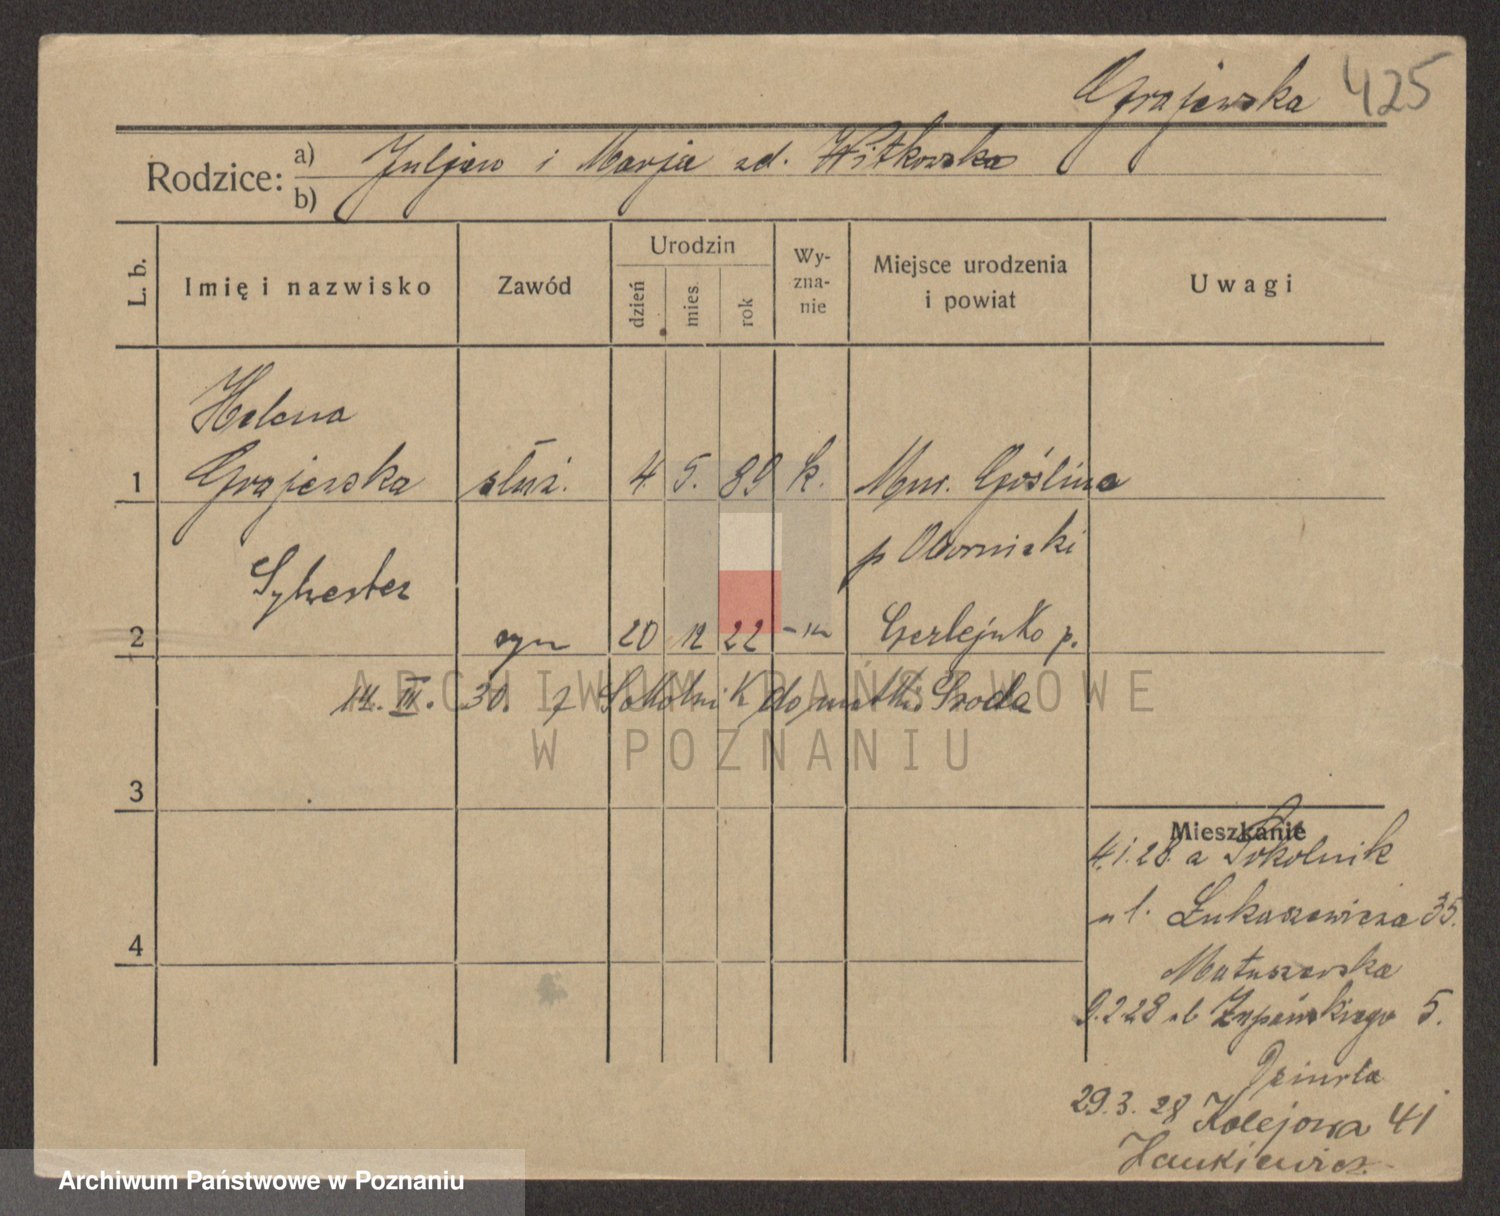 Grajewska 425
Rodzice: a) b) Juljan i Marja zd. Witkowska
L. b.
Imię i nazwisko
Zawód
Urodzin
dzień
mies.
rok
Wy-
zna-
nie
Miejsce urodzenia
i powiat
Uwagi
Helena
1 Grajewska służ. 4 5. 89 k. Mur. Goślina
p Obornicki
Sylwester
2 syn 20 12 22 Gerlejnko p.
14. III. 30. z Sokolnik do matki Środa
ARCHIWUM PAŃSTWOWE
W POZNANIU
3
Mieszkanie
4.1.28. a Sokolnik
ul. Łukaszewicza 35.
4
Matuszewska
9.2.28 ul Żupańskiego 5.
29.3.28 Kolejowa 41
Hankiewicz
Archiwum Państwowe w Poznaniu